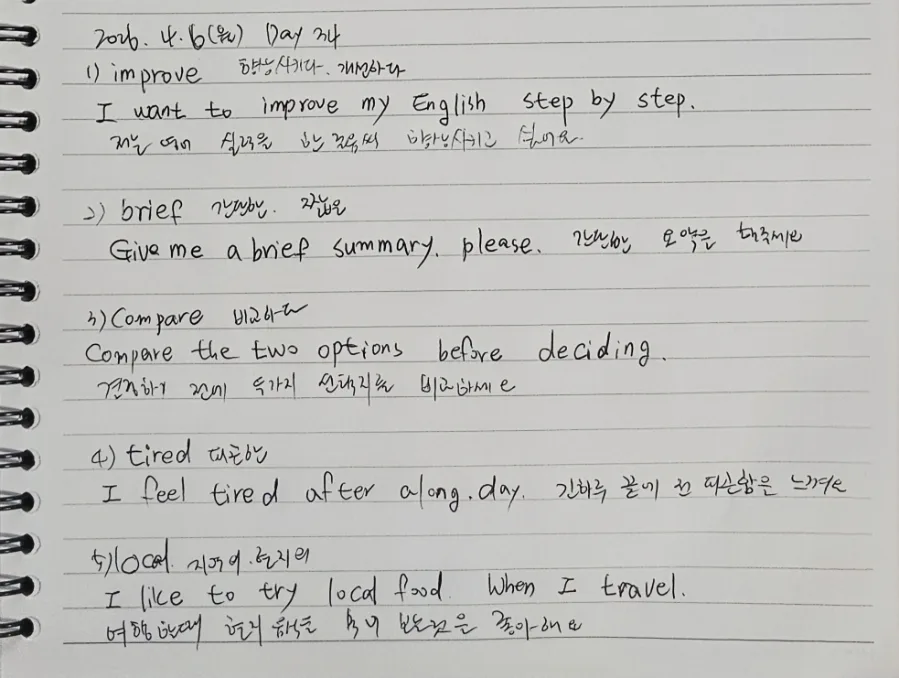 2026. 4. 6(월) Day 34
1) improve 향상시키다. 개선하다
I want to improve my English step by step.
저는 영어 실력을 한 걸음씩 향상시키고 싶어요.
2) brief 간단한. 짧은
Give me a brief summary. please. 간단한 요약을 해주세요
3) Compare 비교하다
Compare the two options before deciding.
결정하기 전에 두가지 선택지를 비교하세요
4) tired 피곤한
I feel tired after a long. day. 긴하루 끝에 전 피곤함을 느껴요
5) local. 지역의. 현지의
I like to try local food. When I travel.
여행할때 현지 음식을 먹어 보는것을 좋아해요